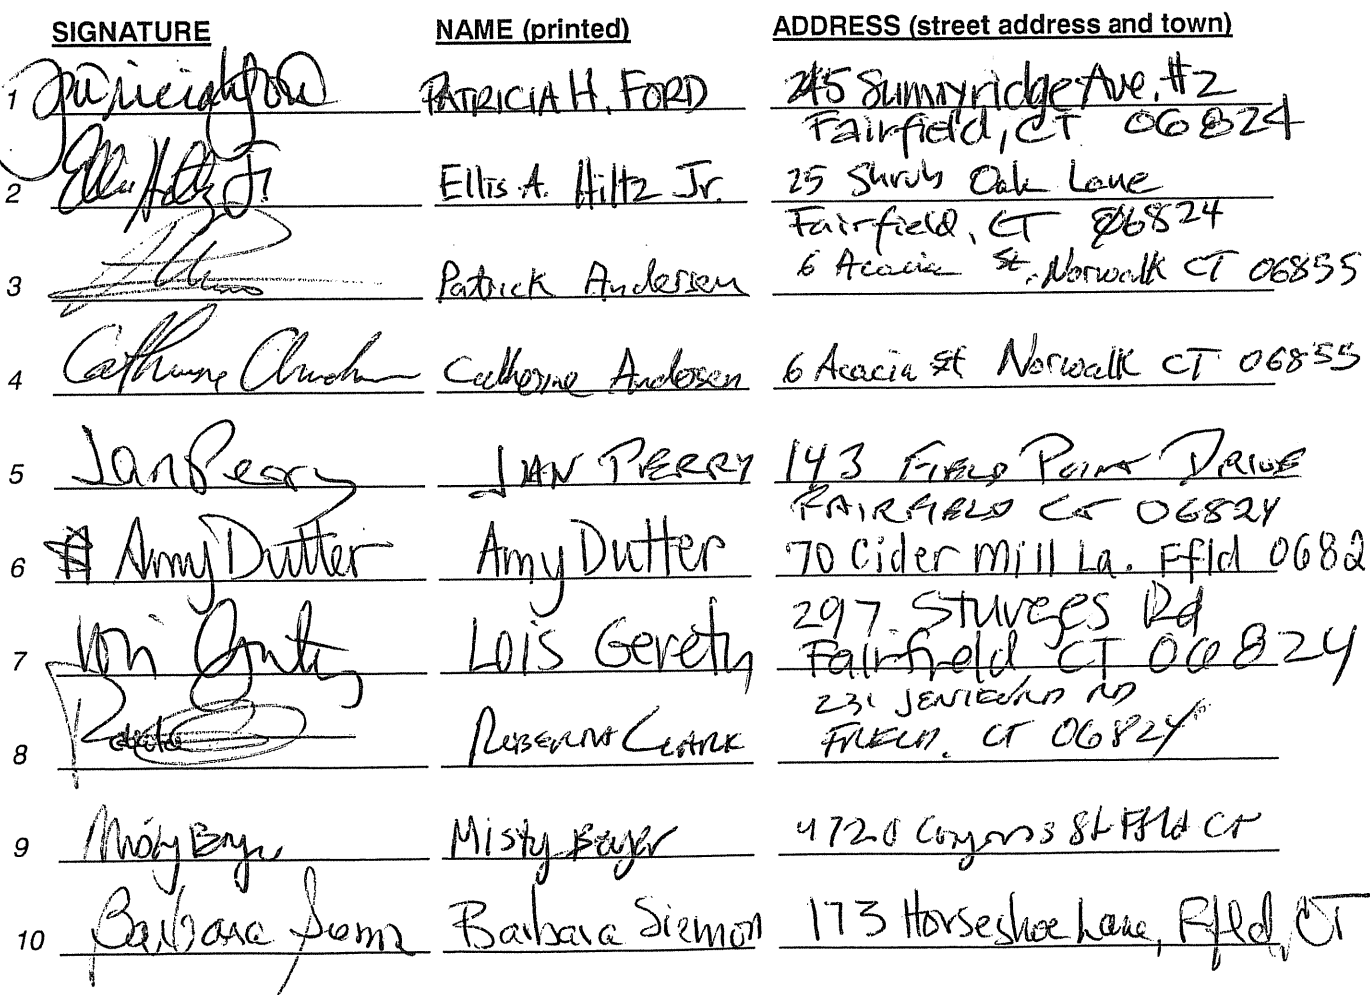 SIGNATURE NAME (printed) ADDRESS (street address and town)
1 PATRICIA H. FORD 245 Sunnyridge Ave. #2
Fairfield, CT 06824
2 Ellis A. Hiltz Jr. 25 Shrub Oak Lane
Fairfield, CT 06824
3 Patrick Andersen 6 Acacia St. Norwalk CT 06855
4 Catherine Andersen Catherine Andersen 6 Acacia St Norwalk CT 06855
5 Jan Perry JAN PERRY 143 FIELD POINT DRIVE
FAIRFIELD CT 06824
6 Amy Dutter Amy Dutter 70 Cider Mill La. Ffld 0682
297 Sturges Rd
7 Lois Gerety Fairfield CT 06824
231 RD
8 ROBERTA CLARK CT 06824
9 Misty Beyer Misty Beyer St Ffld CT
10 Barbara Siemon Barbara Siemon 173 Horseshoe Lane, Ffld, CT